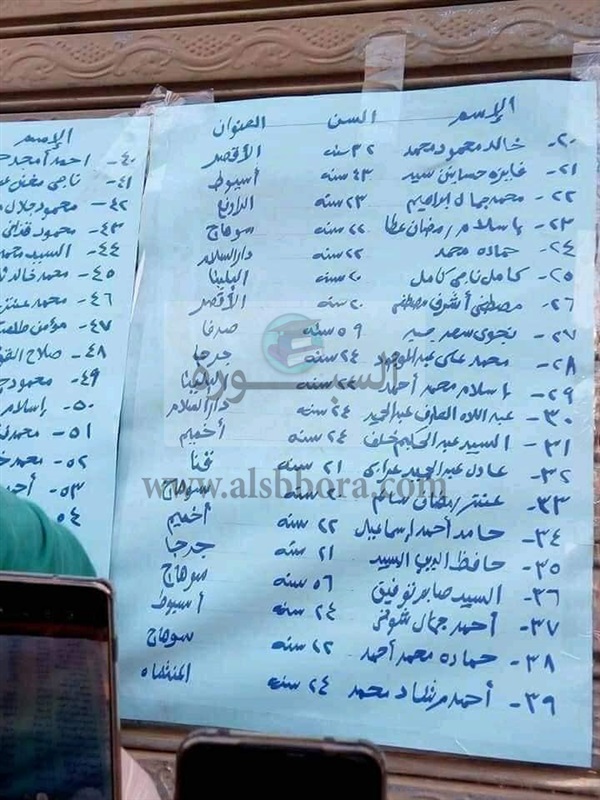 الإسم السن العنوان
٢٠- خالد محمود محمد ٣٢ سنه الأقصر
٢١- فايزه حسانين سيد ٤٣ سنه أسيوط
٢٢- محمد جمال ابراهيم ٢٣ سنه
٢٣- إسلام رمضان عطا ٢٢ سنه سوهاج
٢٤- حماده محمد ٢٢ سنه دار السلام
٢٥- كامل ناجى كامل ٢٠ سنه البلينا
٢٦- مصطفى أشرف مصطفى ٢٠ سنه الأقصر
٢٧- نجوى سعد ٥٩ سنه صدفا
٢٨- محمد على عبد الموجود ٢٤ سنه جرجا
٢٩- إسلام محمد أحمد ٢٢ سنه البلينا
٣٠- عبد اللاه العارف عبد الحميد ٢٤ سنه دار السلام
٣١- السيد عبد الحليم خلف ٢٤ سنه أخميم
٣٢- عادل عبد الحميد ٢١ سنه قنا
٣٣- عنتر رمضان سالم سوهاج
٣٤- حامد أحمد إسماعيل ٢٢ سنه أخميم
٣٥- حافظ السيد ٢١ سنه جرجا
٣٦- السيد صابر توفيق ٥٦ سنه سوهاج
٣٧- أحمد جمال شوقى ٢٤ سنه أسيوط
٣٨- حماده محمد أحمد ٢٢ سنه سوهاج
٣٩- أحمد رشاد محمد ٢٤ سنه المنشاه
الإسم
٤٠- احمد امجد
٤١- ناجى
٤٢- محمود جلال
٤٣- محمود
٤٤- السيد محمد
٤٥- محمد خالد
٤٦- محمد عنتر
٤٧- مؤمن
٤٨- صلاح
٤٩- محمود
٥٠- إسلام
٥١- محمد
٥٢- محمد
٥٣-
٥٤
السبورة
www.alsbbora.com